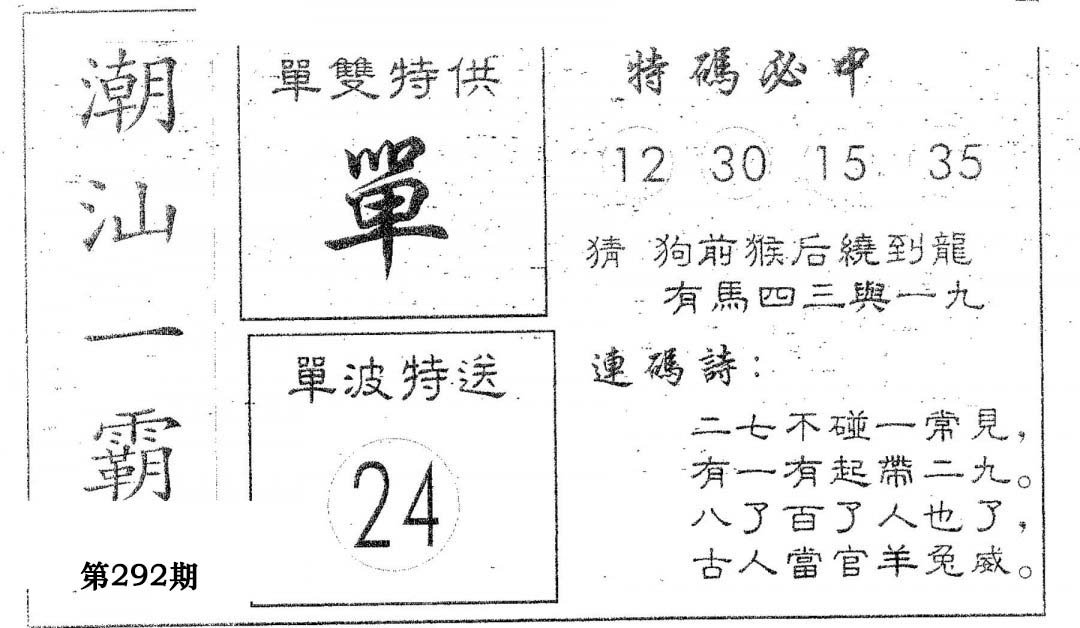 潮汕一霸
第292期
單雙特供
單
單波特送
24
特碼必中
12 30 15 35
猜 狗前猴后繞到龍
有馬四三與一九
連碼詩：
二七不碰一常見，
有一有起帶二九。
八了百了人也了，
古人當官羊兔威。